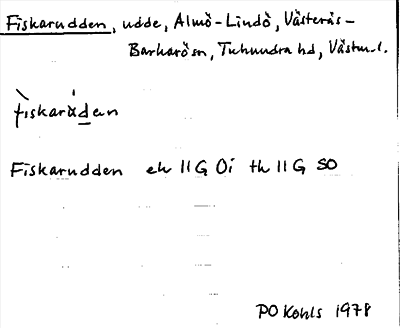 Fiskarudden, udde, Almö-Lindö, Västerås-
Barkarö sn, Tuhundra hd, Västm. l.
fiskarúden
Fiskarudden ek 11G 0i th 11G SO
PO Kohls 1978